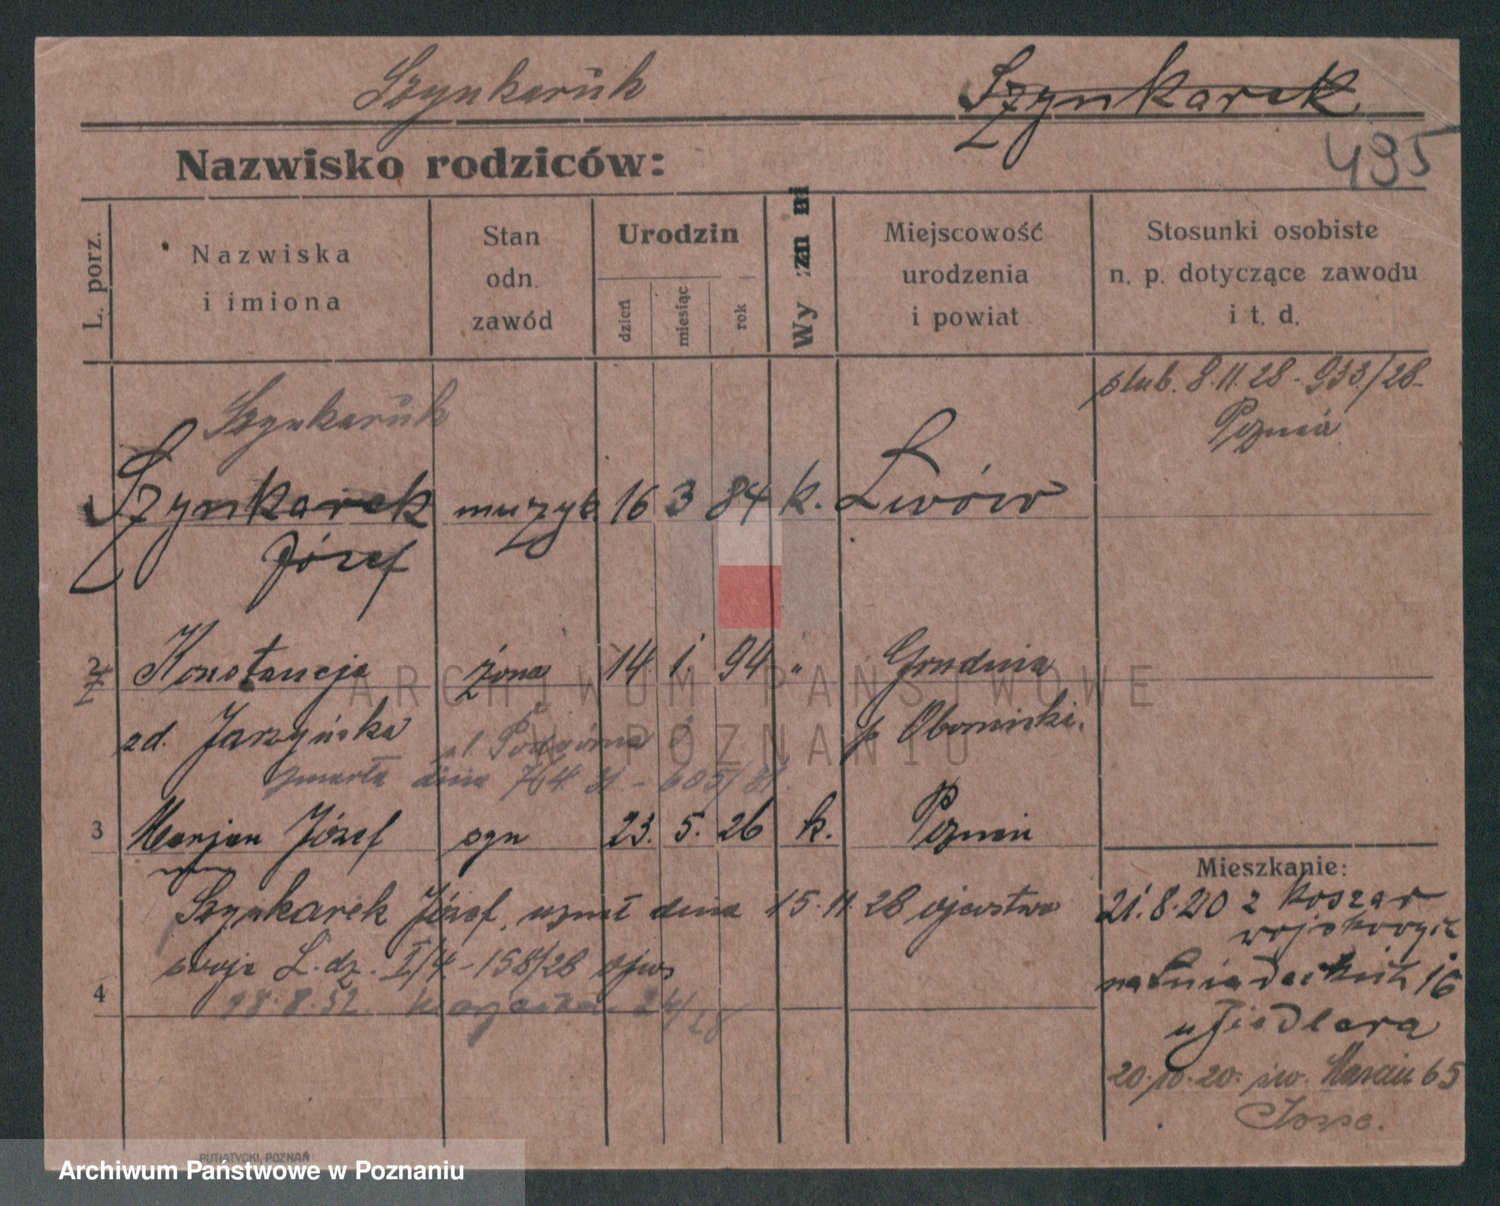 Szynkaruk Szynkarek
495
Nazwisko rodziców:
L. porz.
Nazwiska i imiona
Stan odn. zawód
Urodzin
dzień miesiąc rok
Wyznani
Miejscowość urodzenia i powiat
Stosunki osobiste n. p. dotyczące zawodu i t. d.
ślub. 8.11.28 - 933/28
Poznań
Szynkaruk
Szynkarek muzyk. 16 3 84 k. Lwów
Józef
2 Konstancja żona 14. 1. 94 " Grudnia
zd. Jarzyńska p. Obornicki.
zmarła dnia 605/31.
3 Marjan Józef syn 23. 5. 26 k. Poznań
Mieszkanie:
Szynkarek Józef, uznał dnia 15.11.28 ojcostwo
swoje L. dz. I/4 - 158/28
4
18.8.32.
21.8.20 z koszar
wojskowych
na Śniadeckich 16
u Fiedlera
20.10.20. św. Marcin 65
ARCHIWUM PAŃSTWOWE
W POZNANIU
PUTIATYCKI, POZNAŃ
Archiwum Państwowe w Poznaniu